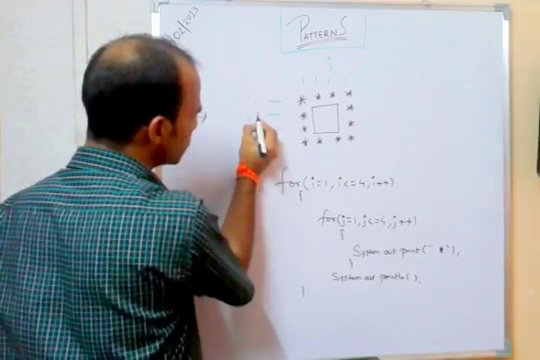 /02/2013
PATTERNS
* * * *
* *
* *
* * * *
for(i=1, i<=4, i++)
{
for(j=1, j<=4, j++)
{
System out print(" * "),
}
System out println( ),
}